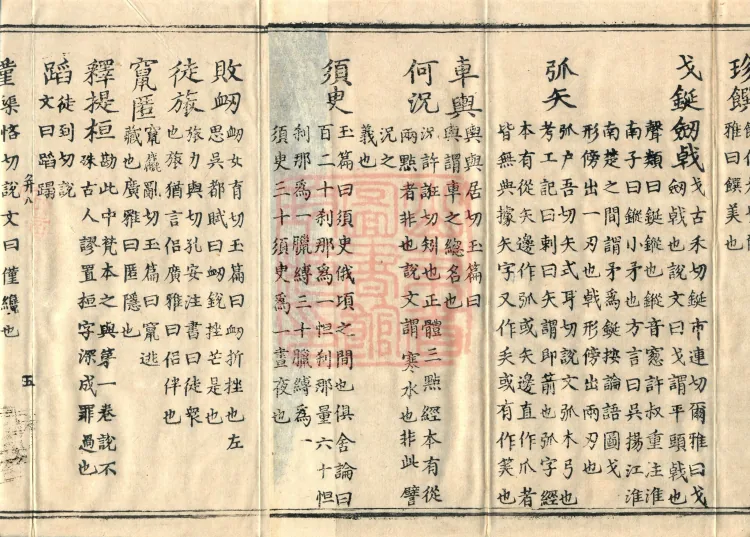 珍饌
雅曰饌美也
戈鋋劔戟 戈古禾切鋋市連切爾雅曰戈
劔戟也說文曰戈謂平頭戟也
聲類曰鋋鏦也鏦音窻許叔重注淮
南子曰鏦小矛也方言曰吳揚江淮
南楚之間謂矛為鋋按論語圖戈
形傍出一刃也戟形傍出兩刃也
弧矢 弧户吾切矢式耳切說文弧木弓也
考工記曰刺曰矢謂即箭也弧字經
本有從矢邊作弧或矢邊直作爪者
皆無典據矢字又作𠂕或有作笶也
車輿 輿與居切玉篇曰
輿謂車之總名也
何況 況許誑切矧也正體三點經本有從
兩點者非也說文謂寒水也非此譬
況之
義也
須臾 玉篇曰須臾俄頃之間也俱舍論曰
百二十剎那為一怛剎那量六十怛
剎那為一臘縛三十臘縛為一
須臾三十須臾為一晝夜也
敗衂 衂女育切玉篇曰衂折挫也左
思吳都賦曰衂銳挫芒是也
徒旅 旅力與切孔安注書曰徒眾
也旅猶言侶廣雅曰侶伴也
竄匿 竄麤亂切玉篇曰竄逃
藏也廣雅曰匿隱也
釋提桓 勘此中梵本之與第一卷說不
殊古人謬置桓字深成罪過也
蹈 徒到切說
文曰蹈蹋
弁八 五
渠恡切說文曰僅纔也